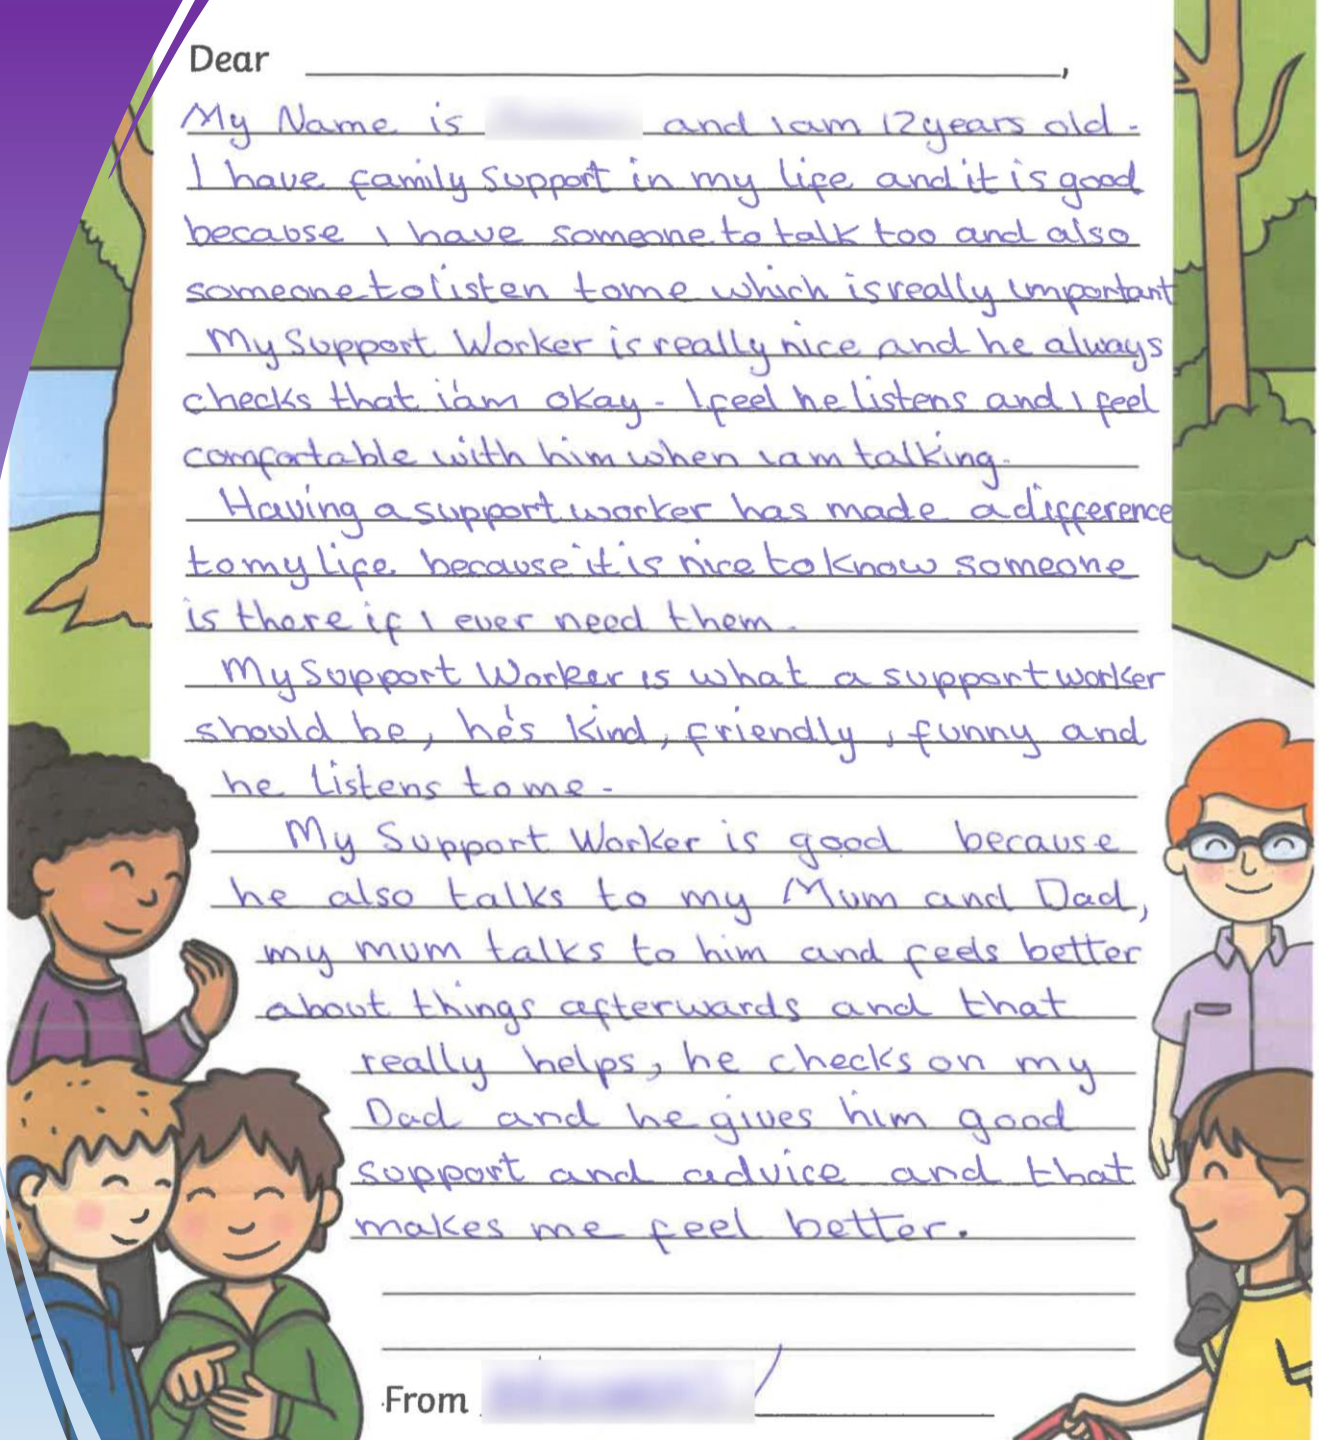 Dear ,
My Name is and I am 12 years old.
I have family support in my life and it is good
because I have someone to talk too and also
someone to listen to me which is really important
My Support Worker is really nice and he always
checks that i'am okay. I feel he listens and I feel
comfortable with him when I am talking.
Having a support worker has made a difference
to my life because it is nice to know someone
is there if I ever need them.
My Support Worker is what a support worker
should be, he's kind, friendly, funny and
he listens to me.
My Support Worker is good because
he also talks to my Mum and Dad,
my mum talks to him and feels better
about things afterwards and that
really helps, he checks on my
Dad and he gives him good
support and advice and that
makes me feel better.
From